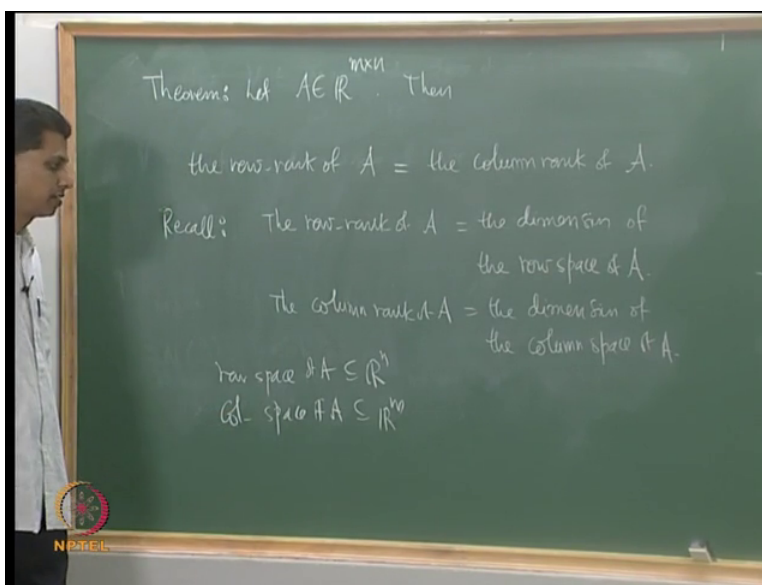 Theorem: Let A ∈ ℝ^{m×n}. Then
the row-rank of A = the column rank of A.
Recall: The row-rank of A = the dimension of
the row space of A.
The column rank of A = the dimension of
the column space of A.
row space of A ⊆ ℝ^n
Col- space of A ⊆ ℝ^m
NPTEL